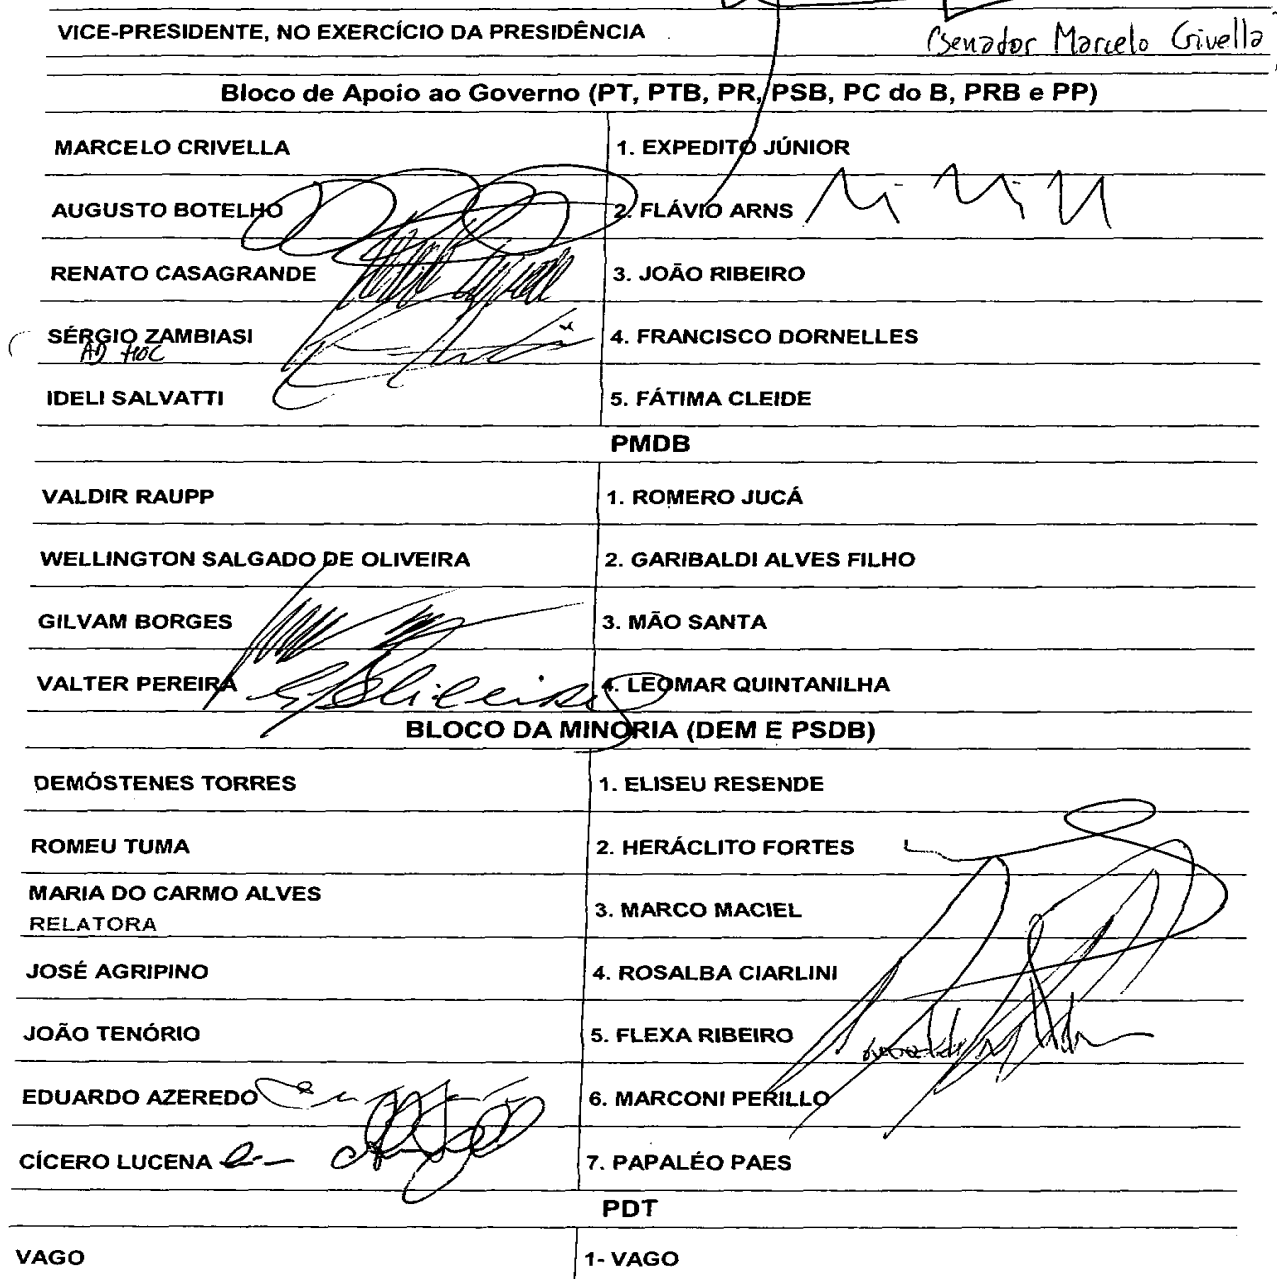 VICE-PRESIDENTE, NO EXERCÍCIO DA PRESIDÊNCIA
(Senador Marcelo Crivella
Bloco de Apoio ao Governo (PT, PTB, PR, PSB, PC do B, PRB e PP)
MARCELO CRIVELLA 1. EXPEDITO JÚNIOR
AUGUSTO BOTELHO 2. FLÁVIO ARNS
RENATO CASAGRANDE 3. JOÃO RIBEIRO
SÉRGIO ZAMBIASI 4. FRANCISCO DORNELLES
AD HOC
IDELI SALVATTI 5. FÁTIMA CLEIDE
PMDB
VALDIR RAUPP 1. ROMERO JUCÁ
WELLINGTON SALGADO DE OLIVEIRA 2. GARIBALDI ALVES FILHO
GILVAM BORGES 3. MÃO SANTA
VALTER PEREIRA 4. LEOMAR QUINTANILHA
BLOCO DA MINORIA (DEM E PSDB)
DEMÓSTENES TORRES 1. ELISEU RESENDE
ROMEU TUMA 2. HERÁCLITO FORTES
MARIA DO CARMO ALVES
RELATORA 3. MARCO MACIEL
JOSÉ AGRIPINO 4. ROSALBA CIARLINI
JOÃO TENÓRIO 5. FLEXA RIBEIRO
EDUARDO AZEREDO 6. MARCONI PERILLO
CÍCERO LUCENA 7. PAPALÉO PAES
PDT
VAGO 1- VAGO